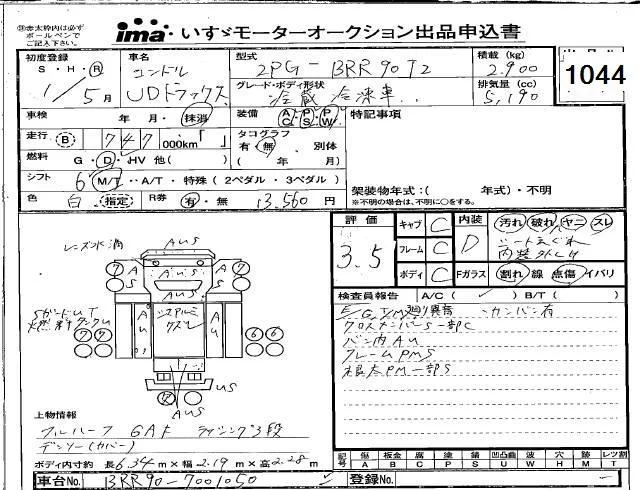 ima いすゞモーターオークション出品申込書
※赤太枠内は必ず
ボールペンで
ご記入下さい。
1044
初度登録 S・H・R 1/5月
車名 コンドル UDトラックス
型式 2PG-BRR90T2
積載(kg) 2,900
グレード・ボディ形状 冷蔵冷凍車
排気量(cc) 5,190
車検 年 月・抹消
装備 AC PS PW
特記事項
走行 B 747 000km「 」
タコグラフ 有・無 別体 ( 年 月)
燃料 G・D・HV 他( )
シフト 6 M/T・A/T・特殊(2ペダル・3ペダル)
架装物年式:( 年式)・不明
※不明の場合は、不明に○をする。
色 白 指定 R券 有・無 13,560円
評価 3.5
キャブ C
フレーム C
ボディ C
内装 D
汚れ 破れ ヤニ スレ
内装外しケ
Fガラス 割れ 線 点傷 イバリ
検査員報告 A/C( ✓ ) B/T( )
E/G,T/M廻り異音 カンバン有
クロスメンバーS一部C
バン内AU
フレームPMS
根太PM一部S
AUS
AUS
AUS
AUS
AS
AS
AU
AU
上物情報
フルハーフ GAF ラッシング3段
デンソー(カバー)
ボディ内寸約 長6.34m×幅2.19m×高2.28m
記号 傷 A 板金 B 腐 C 塗 P 錆 S 凹凸曲 U 波 W 穴 H 跡 M レツ割 T
車台No. BRR90-7001050
登録No.